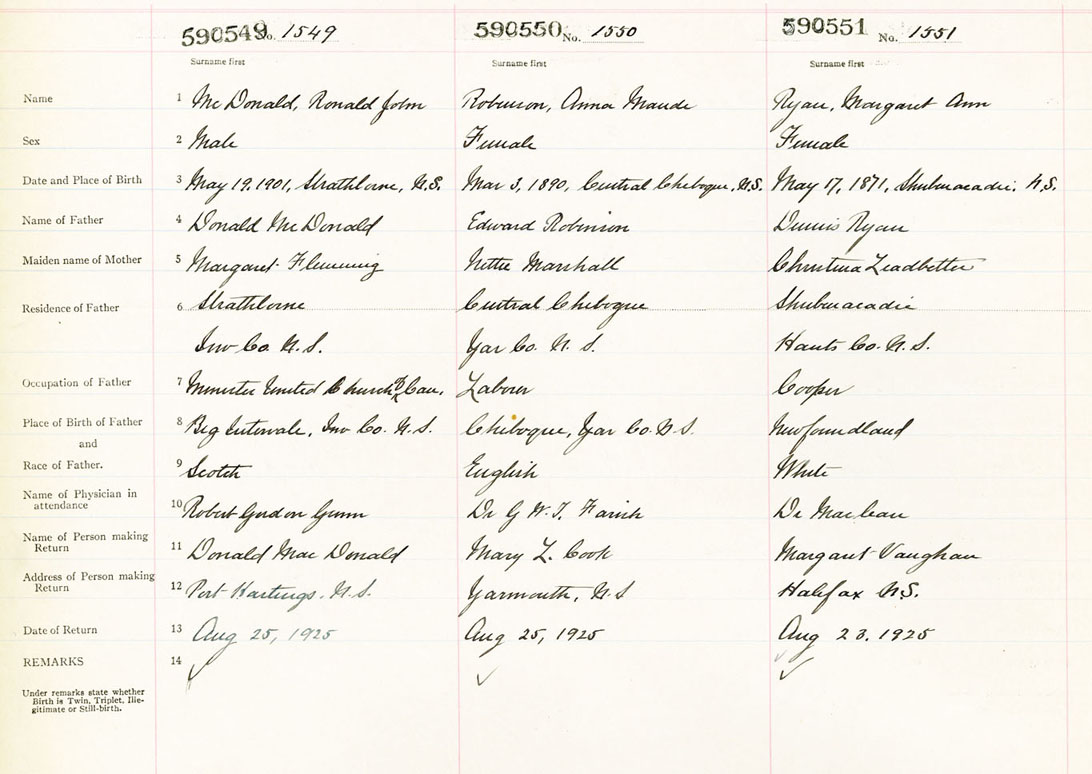 590549 No. 1549 590550 No. 1550 590551 No. 1551
Surname first Surname first Surname first
Name 1 Mc Donald, Ronald John Robinson, Anna Maude Ryan, Margaret Ann
Sex 2 Male Female Female
Date and Place of Birth 3 May 19, 1901, Strathlorne, N.S. Mar 3, 1890, Central Chebogue, N.S. May 17, 1871, Shubenacadie, N.S.
Name of Father 4 Donald Mc Donald Edward Robinson Dennis Ryan
Maiden name of Mother 5 Margaret Flemming Nettie Marshall Christina Leadbetter
Residence of Father 6 Strathlorne Central Chebogue Shubenacadie
Inv Co. N.S. Yar Co. N.S. Hants Co. N.S.
Occupation of Father 7 Minister United Church of Can. Laborer Cooper
Place of Birth of Father 8 Big Intervale, Inv Co. N.S. Chebogue, Yar Co. N.S. Newfoundland
and
Race of Father. 9 Scotch English White
Name of Physician in
attendance 10 Robert Gordon Gunn Dr G W. T. Farish Dr MacLean
Name of Person making
Return 11 Donald Mac Donald Mary L. Cook Margaret Vaughan
Address of Person making
Return 12 Port Hastings. N.S. Yarmouth, N.S Halifax N.S.
Date of Return 13 Aug 25, 1925 Aug 25, 1925 Aug 23. 1925
REMARKS 14
Under remarks state whether
Birth is Twin, Triplet, Ille-
gitimate or Still-birth.